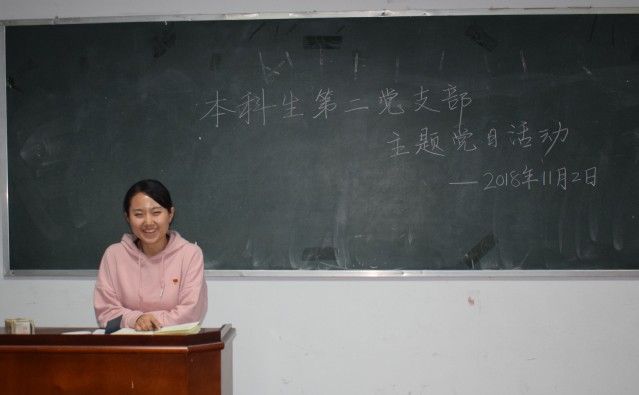 本科生第二党支部
主题党日活动
——2018年11月2日